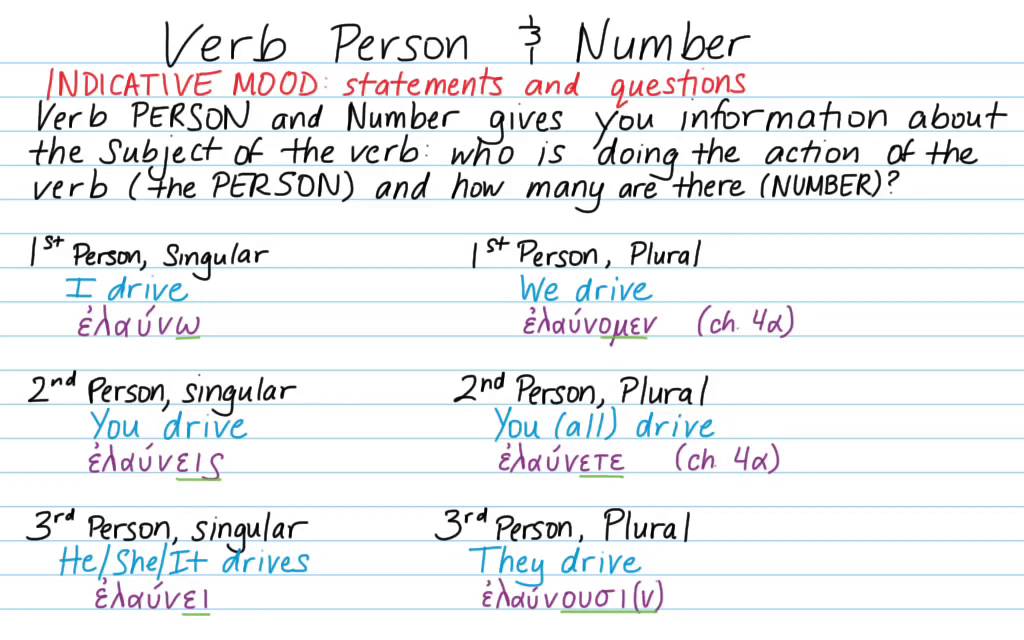 Verb Person & Number
INDICATIVE MOOD: statements and questions
Verb PERSON and Number gives you information about
the Subject of the verb: who is doing the action of the
verb (the PERSON) and how many are there (NUMBER)?
1st Person, Singular
I drive
ἐλαύνω
1st Person, Plural
We drive
ἐλαύνομεν (ch. 4α)
2nd Person, singular
You drive
ἐλαύνεις
2nd Person, Plural
You (all) drive
ἐλαύνετε (ch 4α)
3rd Person, singular
He/She/It drives
ἐλαύνει
3rd Person, Plural
They drive
ἐλαύνουσι(ν)